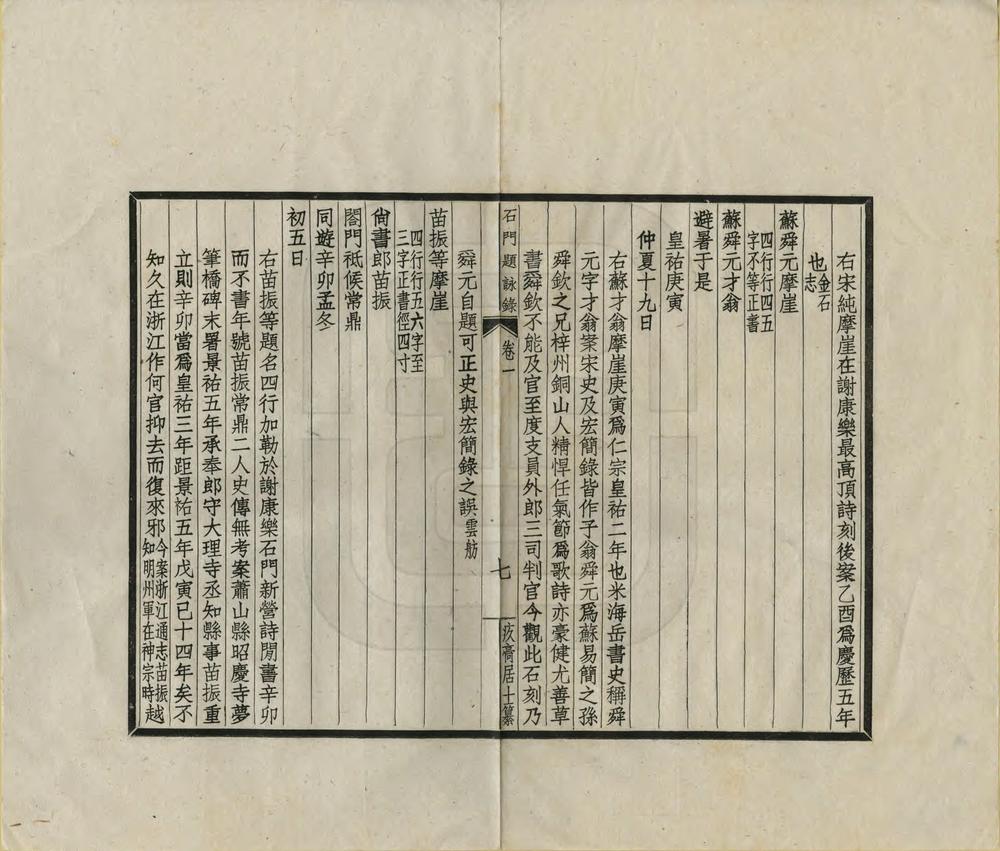 右宋純摩崖在謝康樂最高頂詩刻後案乙酉爲慶歷五年
也金石志
蘇舜元摩崖
四行行四五字不等正書
蘇舜元才翁
避暑于是
皇祐庚寅
仲夏十九日
右蘇才翁摩崖庚寅爲仁宗皇祐二年也米海岳書史稱舜
元字才翁案宋史及宏簡錄皆作子翁舜元爲蘇易簡之孫
舜欽之兄梓州銅山人精悍任氣節爲歌詩亦豪健尤善草
書舜欽不能及官至度支員外郎三司判官今觀此石刻乃
石門題詠錄 卷一 七 疚齋居士纂
舜元自題可正史與宏簡錄之誤雲舫
苗振等摩崖
四行行五六字至三字正書徑四寸
尙書郎苗振
閤門祗候常鼎
同遊辛卯孟冬
初五日
右苗振等題名四行加勒於謝康樂石門新營詩閒書辛卯
而不書年號苗振常鼎二人史傳無考案蕭山縣昭慶寺夢
筆橋碑末署景祐五年承奉郎守大理寺丞知縣事苗振重
立則辛卯當爲皇祐三年距景祐五年戊寅已十四年矣不
知久在浙江作何官抑去而復來邪今案浙江通志苗振知明州軍在神宗時越